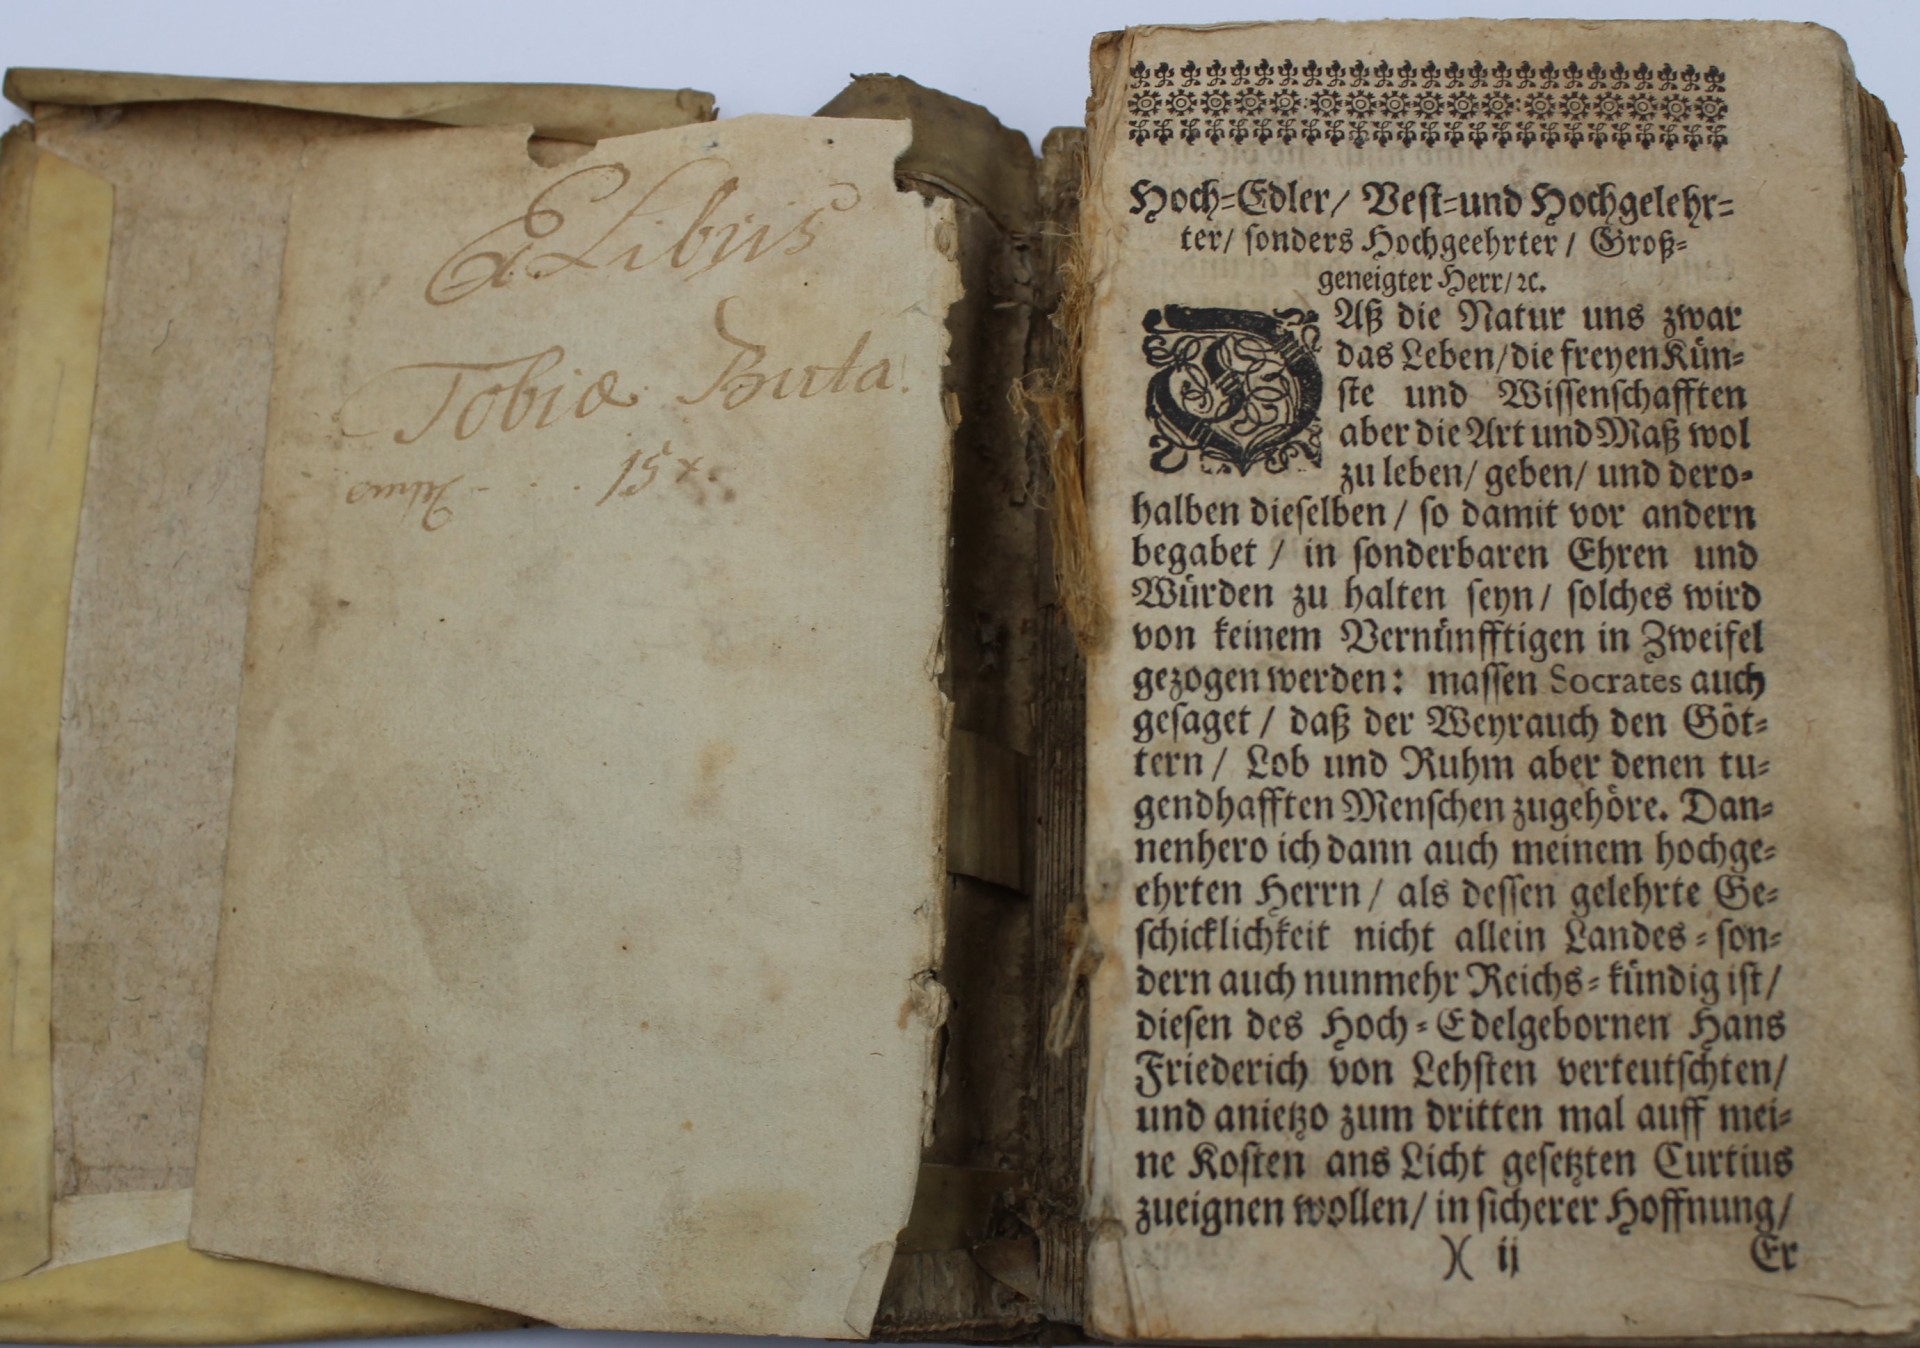 Ex Libris
Tobiæ Buta.
15x.
Hoch=Edler/ Vest=und Hochgelehr=
ter/ sonders Hochgeehrter/ Groß=
geneigter Herr/ ꝛc.
DAß die Natur uns zwar
das Leben/die freyen Kün=
ste und Wissenschafften
aber die Art und Maß wol
zu leben/ geben/ und dero=
halben dieselben/ so damit vor andern
begabet/ in sonderbaren Ehren und
Würden zu halten seyn/ solches wird
von keinem Vernünfftigen in Zweifel
gezogen werden: massen Socrates auch
gesaget/ daß der Weyrauch den Göt=
tern/ Lob und Ruhm aber denen tu=
gendhafften Menschen zugehöre. Dan=
nenhero ich dann auch meinem hochge=
ehrten Herrn/ als dessen gelehrte Ge=
schicklichkeit nicht allein Landes=son=
dern auch nunmehr Reichs=kündig ist/
diesen des Hoch=Edelgebornen Hans
Friederich von Lehsten verteutschten/
und anietzo zum dritten mal auff mei=
ne Kosten ans Licht gesetzten Curtius
zueignen wollen/ in sicherer Hoffnung/
)( ij Er